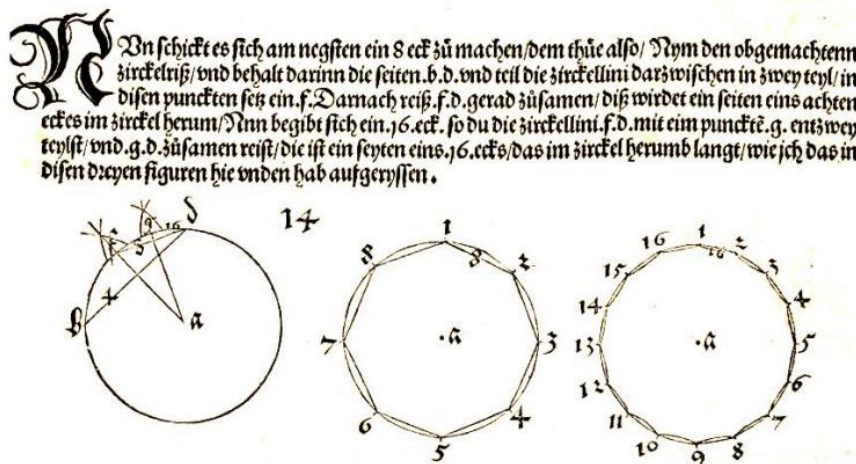 NUn schickt es sich am negsten ein 8 eck zů machen/dem thůe also/ Nym den obgemachtenn
zirckelriß/vnd behalt darinn die seiten.b.d.vnd teil die zirckellini darzwischen in zwey teyl/in
disen punckten setz ein.f.Darnach reiß.f.d.gerad zůsamen/diß wirdet ein seiten eins achten
eckes im zirckel herum/Nnn begibt sich ein.16.eck. so du die zirckellini.f.d.mit eim puncktē.g. entzwey
teylst/vnd.g.d.zůsamen reist/die ist ein seyten eins.16.ecks/das im zirckel herumb langt/wie jch das in
disen dreyen figuren hie vnden hab aufgeryssen.
14
f g 16 d
8
b 4 a
1 2 3 4 5 6 7 8
8
a
1 2 3 4 5 6 7 8 9 10 11 12 13 14 15 16
16
a